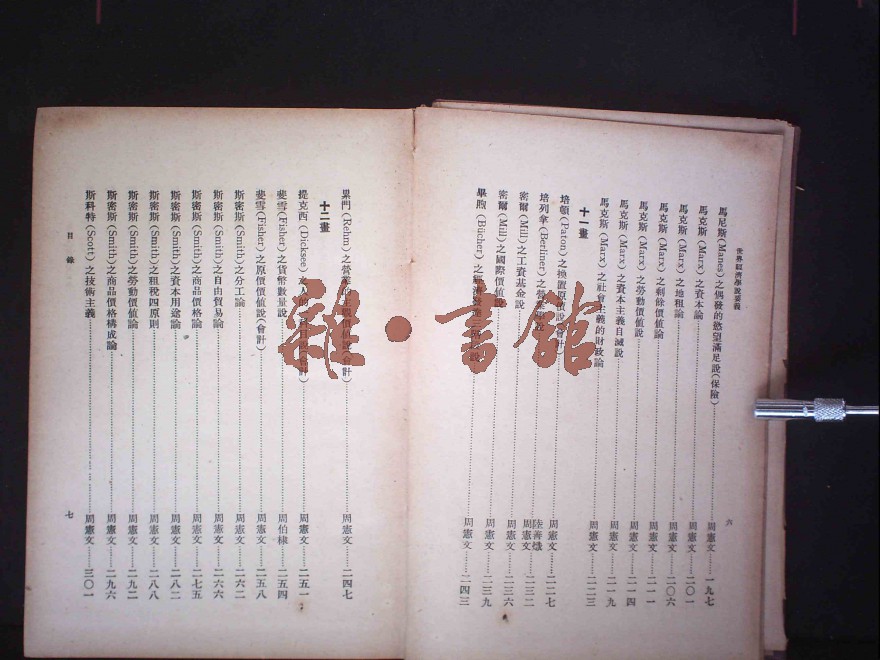 世界經濟學說要義
馬尼斯(Manes)之偶發的慾望滿足說(保險)……周憲文……一九七
馬克斯(Marx)之資本論……周憲文……二〇一
馬克斯(Marx)之地租論……周憲文……二〇六
馬克斯(Marx)之剩餘價值論……周憲文……二一一
馬克斯(Marx)之勞動價值說……周憲文……二一四
馬克斯(Marx)之資本主義自滅說……周憲文……二一九
馬克斯(Marx)之社會主義的財政論……周憲文……二二三
十一畫
培頓(Paton)之換置原價說(會計……周憲文……二二七
培列拿(Berliner)之營業……說……陸善熾
密爾(Mill)之工資基金說……周憲文……二三二
密爾(Mill)之國際價值說……周憲文……二三六
畢胞(Bücher)之經濟發達三階段說……周憲文……二三九
周憲文……二四三
六
累門(Rehm)之營業的主觀價值說(會計)……周憲文……二四七
十二畫
提克西(Dicksee)之人的……科目說(會計)……周憲文……二五一
斐雪(Fisher)之貨幣數量說……周伯棣……二五四
斐雪(Fisher)之原價價值說(會計)……周憲文……二五八
斯密斯(Smith)之分工論……周憲文……二六二
斯密斯(Smith)之自由貿易論……周憲文……二六六
斯密斯(Smith)之商品價格論……周憲文……二七五
斯密斯(Smith)之資本用途論……周憲文……二八二
斯密斯(Smith)之租稅四原則……周憲文……二八八
斯密斯(Smith)之勞動價值論……周憲文……二九二
斯密斯(Smith)之商品價格構成論……周憲文……二九六
斯科特(Scott)之技術主義……周憲文……三〇一
目錄
七
雜·書館